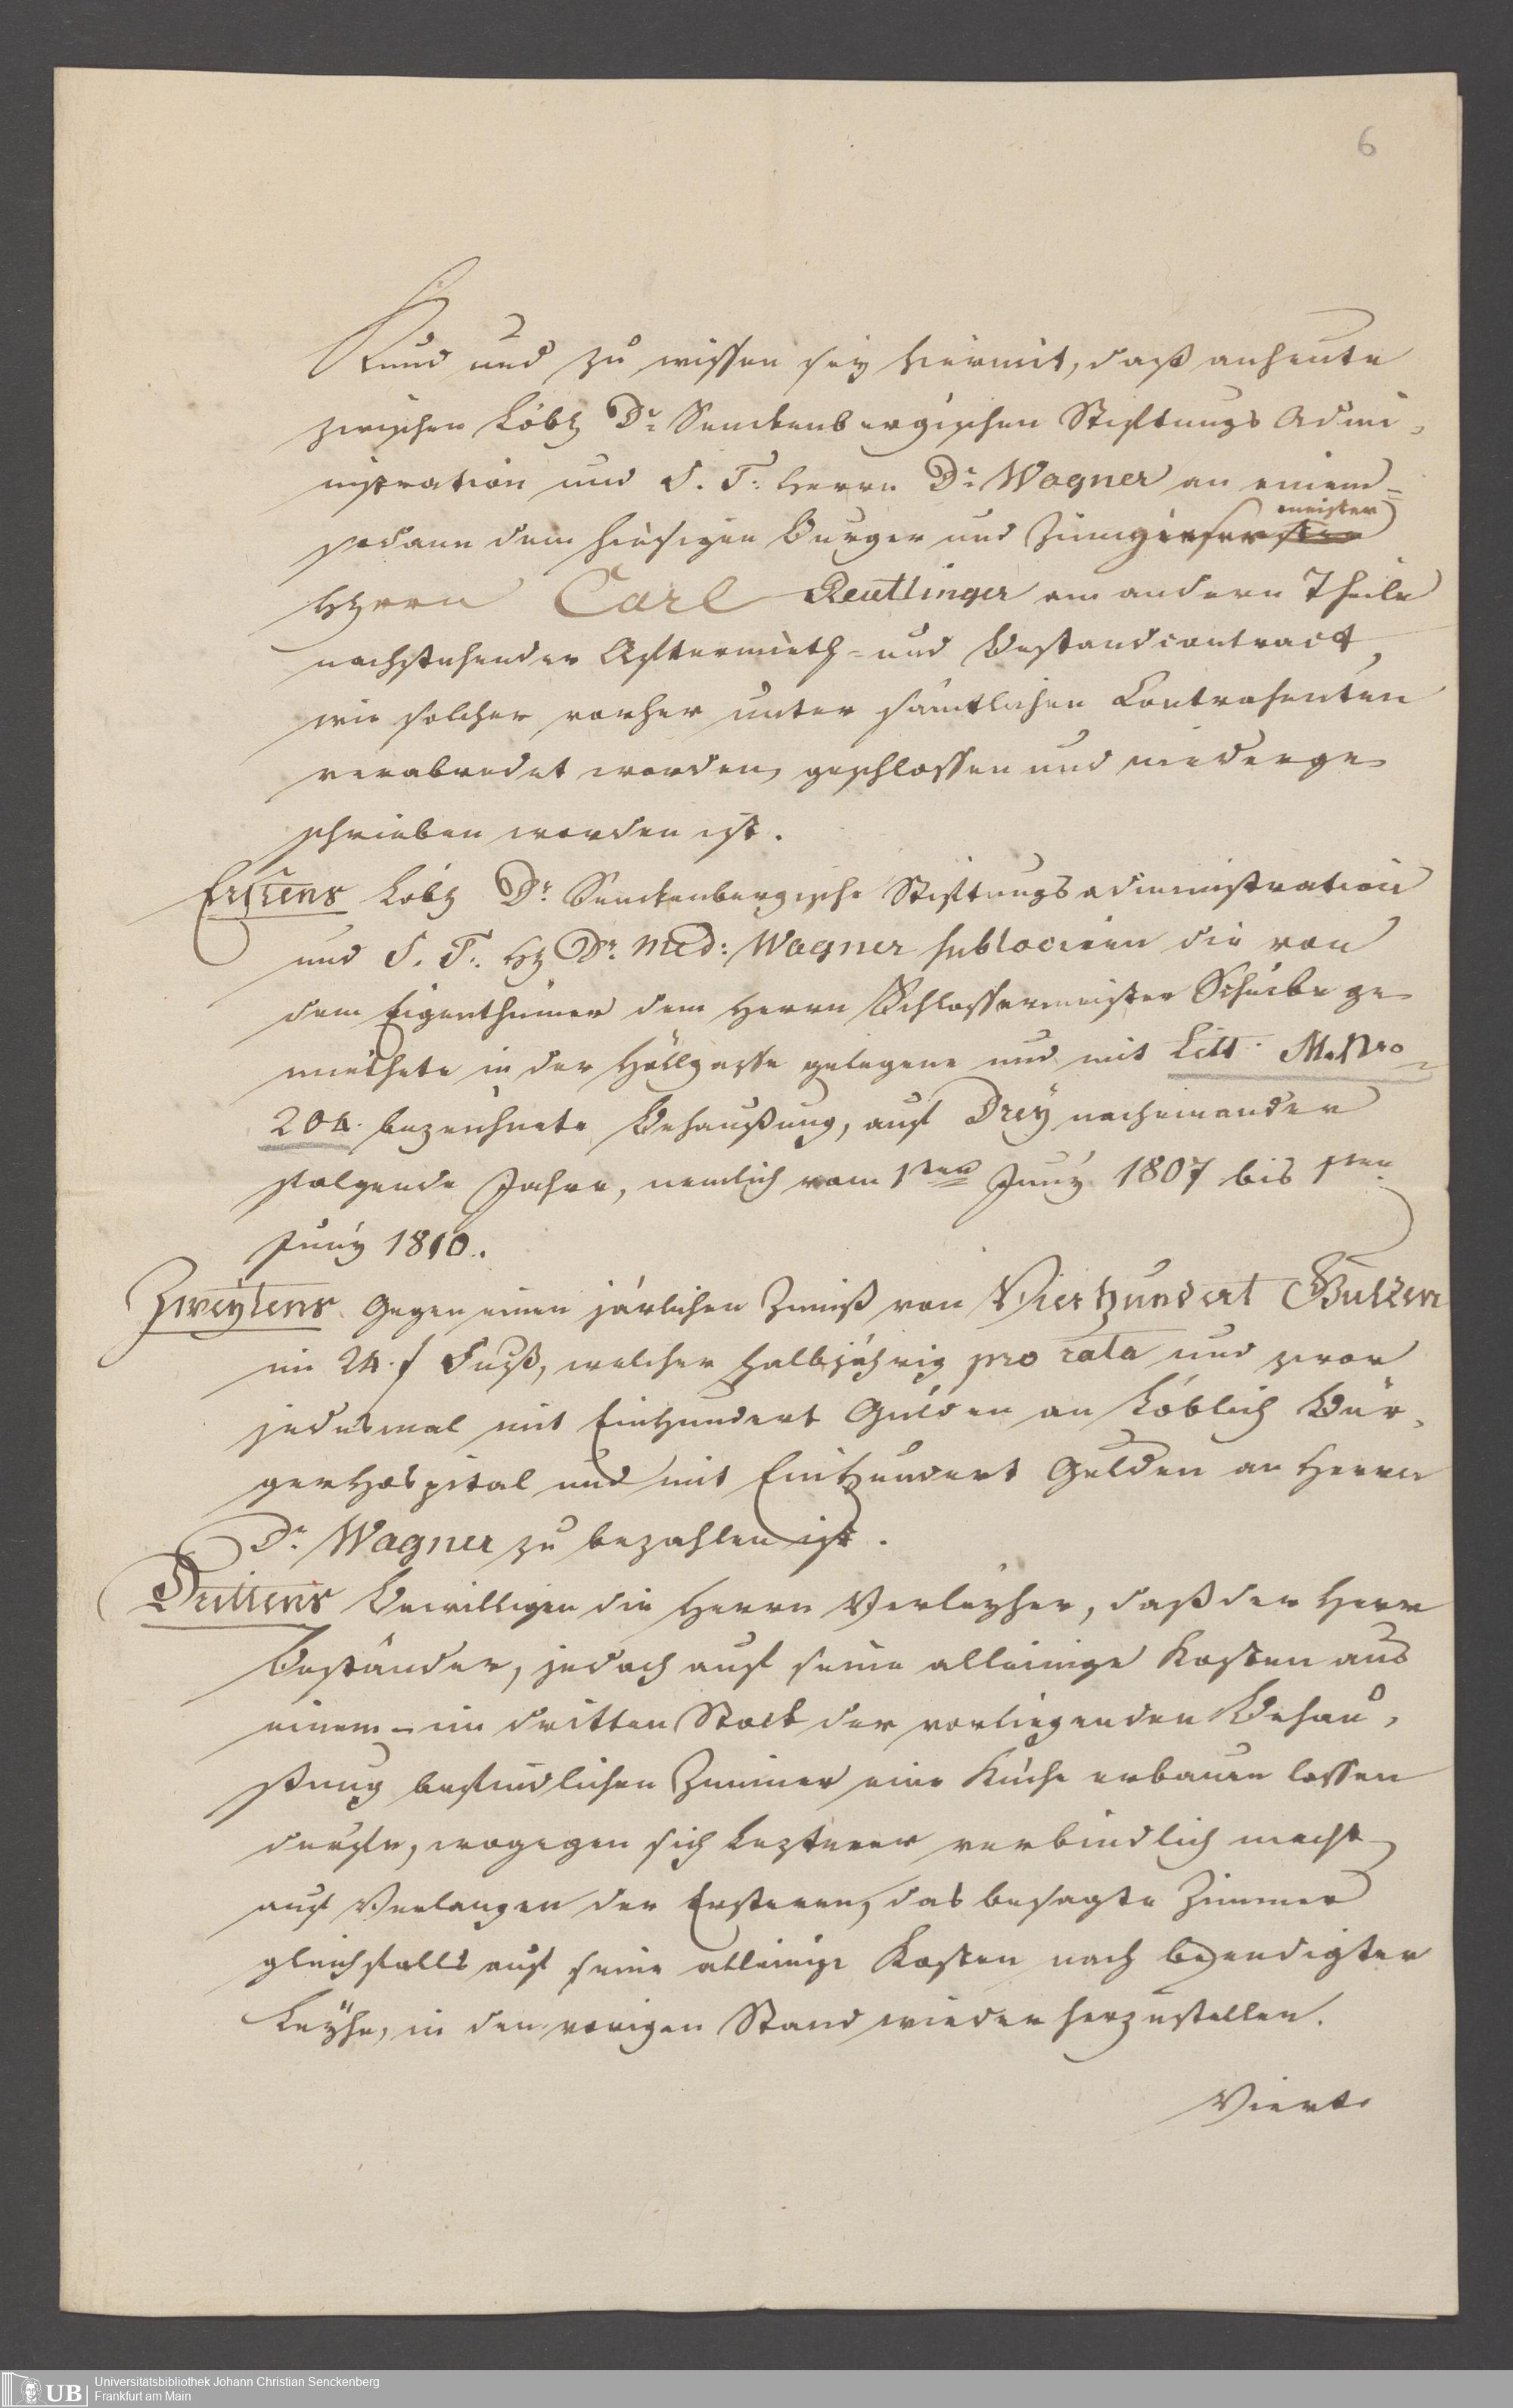 6
Kund und zu wissen sey hiermit, daß anheute
zwischen Löbl Dr Senckenbergischen Stiftungs Admi-
nistration und S. T. Herrn Dr Wagner an einem-
sodann dem hiesigen Burger und Zinngießer meister
Herrn Carl Reutlinger am andern Theile
nachstehender Aftermieth- und Bestandcontract,
wie solcher vorher unter sämtlichen Contrahenten
verabredet worden, geschlossen und niederge
schrieben worden ist.
Erstens Löbl Dr Senckenbergische Stiftungsadministration
und S. T. H Dr Med: Wagner sublociren die von
dem Eigenthümer dem Herrn Schlossermeister Scheibe ge
miethete in der Höllgasse gelegene und mit Litt. M. Nro
204. bezeichnete Behaußung, auf Drey nacheinander
folgende Jahre, nemlich vom 1ten Juny 1807 bis 1ten
Juny 1810.
Zweytens Gegen einen järlichen Zinnß von Vierhundert Gulden
im 24. f Fuß, welcher halbjährig pro rata und zwar
jedesmal mit Einhundert Gulden an Löblich Bür-
gerhospital und mit Einhundert Gulden an Herrn
Dr Wagner zu bezahlen ist.
Drittens Bewilligen die Herrn Verleyher, daß der Herr
Beständer, jedoch auf seine alleinige Kosten aus
einem - im dritten Stock der vorliegenden Behau-
ßung befindlichen Zimmer eine Küche erbauen lassen
dürfte, wogegen sich Lezterer verbindlich macht,
auf Verlangen der Ersteren, das besagte Zimmer
gleichfalls auf seine alleinige Kosten nach beendigter
Leyhe, in den vorigen Stand wieder herzustellen.
Viert-
UB Universitätsbibliothek Johann Christian Senckenberg
Frankfurt am Main